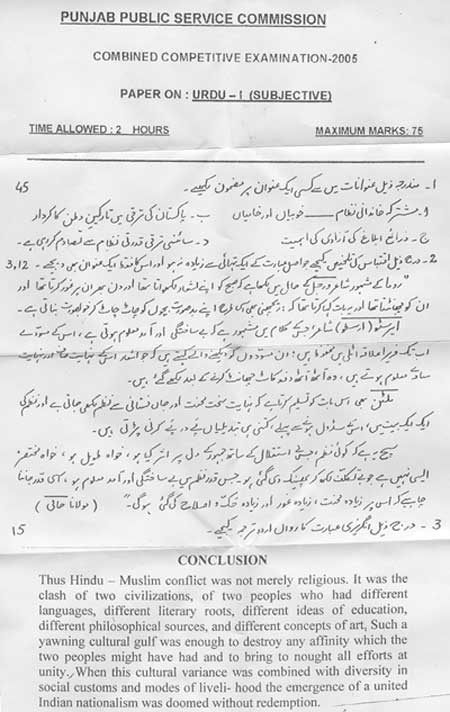 PUNJAB PUBLIC SERVICE COMMISSION
COMBINED COMPETITIVE EXAMINATION-2005
PAPER ON : URDU – I (SUBJECTIVE)
TIME ALLOWED : 2 HOURS MAXIMUM MARKS: 75
1- مندرجہ ذیل عنوانات میں سے کسی ایک عنوان پر مضمون لکھیے۔ 45
ا۔ مشترکہ خاندانی نظام ــــ خوبیاں اور خامیاں ب۔ پاکستان کی ترقی میں تارکین وطن کا کردار
ج۔ ذرائع ابلاغ کی آزادی کی اہمیت د۔ سائنسی ترقی قدرتی نظام سے تصادم کر رہی ہے۔
2- درج ذیل اقتباس کی تلخیص کیجیے جو اصل عبارت کے ایک تہائی سے زیادہ نہ ہو اور اس کا عنوان بھی دیجیے۔ 3,12
"روما کے مشہور شاعر ورجل کے حال میں لکھا ہے کہ صبح کو اپنے اشعار لکھواتا تھا اور دن بھر ان پر غور کرتا تھا اور
ان کو چھانٹتا تھا اور یہ بات کہا کرتا تھا کہ: "ریچھنی بھی اسی طرح اپنے بدصورت بچوں کو چاٹ چاٹ کر خوبصورت بناتی ہے۔
ایرسٹو شاعر جس کے کلام میں مشہور ہے کہ بے ساختگی اور آمد معلوم ہوتی ہے، اس کے مسودے
اب تک فریرا علاقہ اٹلی میں محفوظ ہیں۔ ان مسودوں کو دیکھنے والے کہتے ہیں کہ جو اشعار اس کے نہایت صاف اور نہایت
سادے معلوم ہوتے ہیں، وہ آٹھ آٹھ دفعہ کاٹ چھانٹ کرنے کے بعد لکھے گئے ہیں۔
ملٹن بھی اس بات کو تسلیم کرتا ہے کہ نہایت سخت محنت اور جاں فشانی سے نظم لکھی جاتی ہے اور نظم کی
ایک ایک بیت میں، اس کے سڈول ہونے سے پہلے، کتنی ہی تبدیلیاں پے در پے کرنی پڑتی ہیں۔
سچ یہ ہے کہ کوئی نظم، جس نے استقلال کے ساتھ جمہور کے دل پر اثر کیا ہو، خواہ طویل ہو، خواہ مختصر
ایسی نہیں ہے جو بے تکلف لکھ کر پھینک دی گئی ہو۔ جس قدر نظم میں بے ساختگی اور آمد معلوم ہو، اسی قدر جاننا
چاہیے کہ اس پر زیادہ محنت، زیادہ غور اور زیادہ حک و اصلاح کی گئی ہوگی۔" (مولانا حالی)
3- درج ذیل انگریزی عبارت کا رواں اردو ترجمہ کیجیے۔ 15
CONCLUSION
Thus Hindu – Muslim conflict was not merely religious. It was the
clash of two civilizations, of two peoples who had different
languages, different literary roots, different ideas of education,
different philosophical sources, and different concepts of art, Such a
yawning cultural gulf was enough to destroy any affinity which the
two peoples might have had and to bring to nought all efforts at
unity. When this cultural variance was combined with diversity in
social customs and modes of liveli- hood the emergence of a united
Indian nationalism was doomed without redemption.